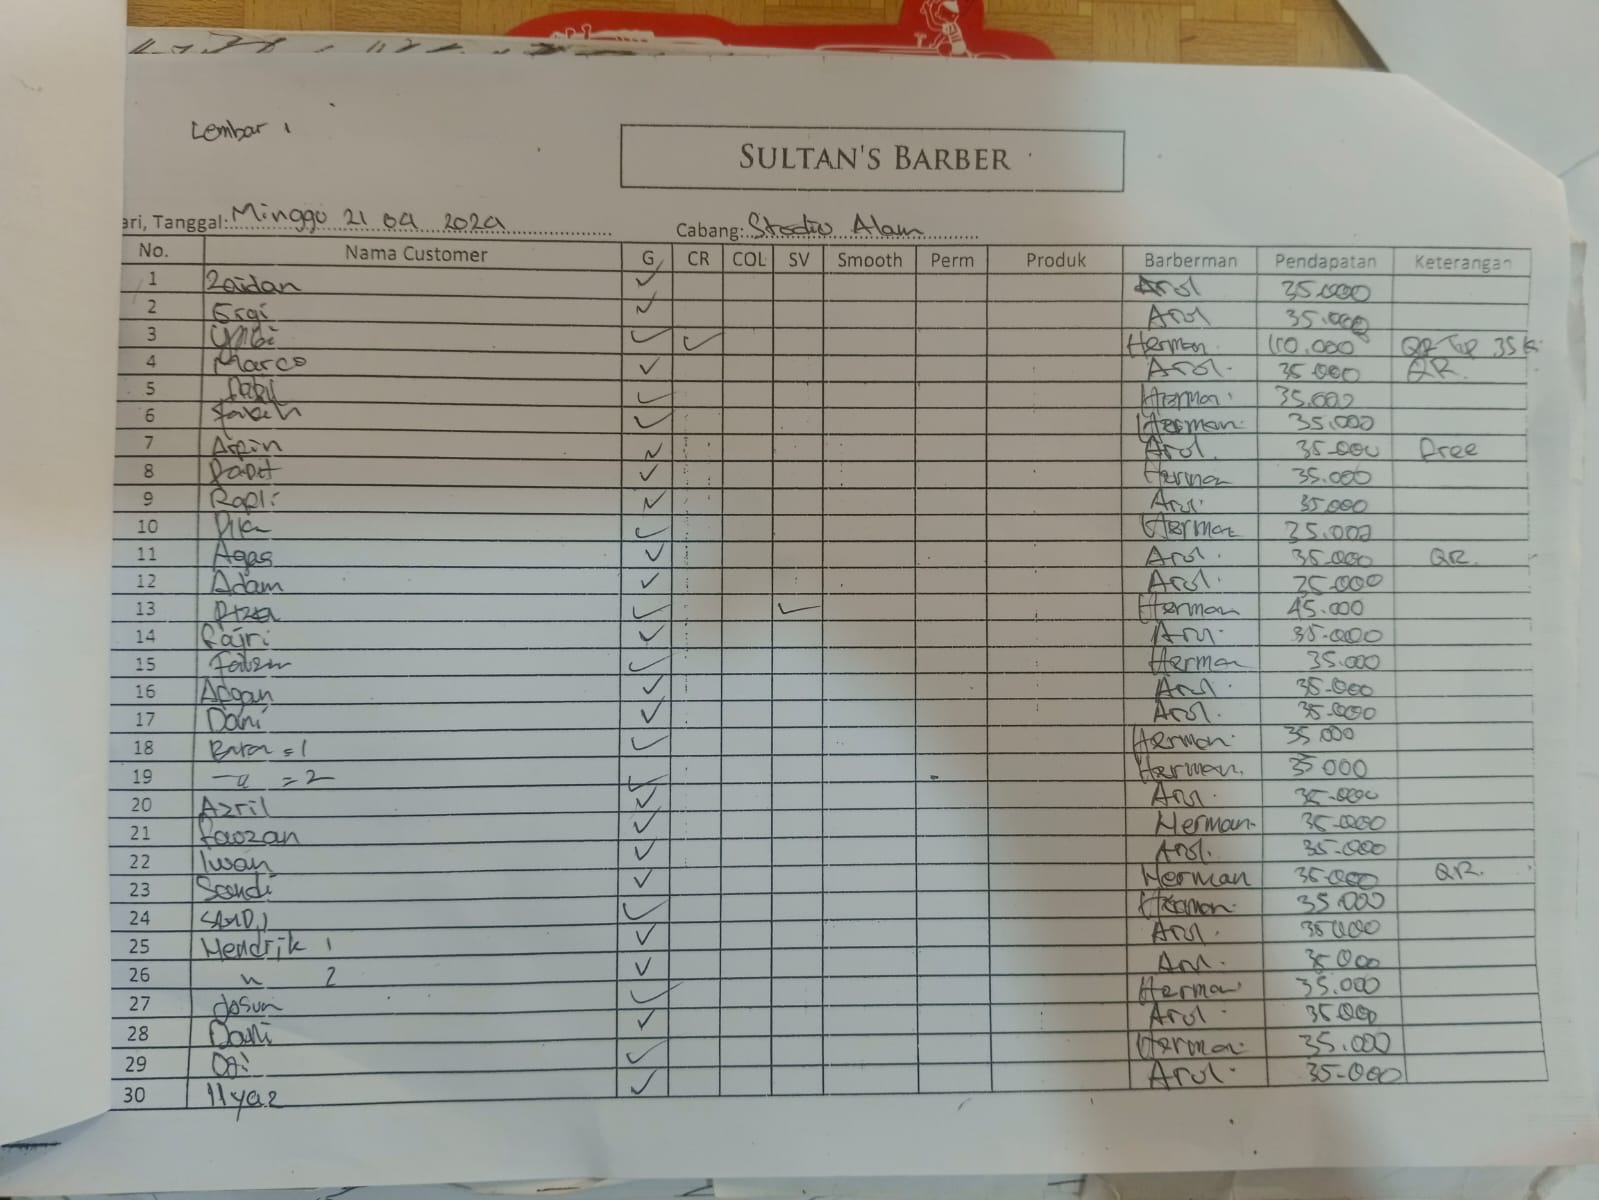 Lembar 1
SULTAN'S BARBER
ari, Tanggal: Minggu 21 04 2024 Cabang: Studio Alam
No. Nama Customer G CR COL SV Smooth Perm Produk Barberman Pendapatan Keterangan
1 Zaidan ✓ Arul 35.000
2 Ergi ✓ Arul 35.000
3 ✓ ✓ Herman 110.000 QR 35k
4 Marco ✓ Arul. 35.000 QR.
5 ✓ Herman. 35.000
6 ✓ Herman. 35.000
7 Aipin ✓ Arul. 35.000 Free
8 ✓ Herman 35.000
9 Rapli ✓ Arul. 35.000
10 ✓ Herman 35.000
11 Agas ✓ Arul. 35.000 QR.
12 Adam ✓ Arul. 35.000
13 ✓ ✓ Herman 45.000
14 Fajri ✓ Arul. 35.000
15 ✓ Herman 35.000
16 ✓ Arul. 35.000
17 Dani ✓ Arul. 35.000
18 = 1 ✓ Herman. 35.000
19 = 2 ✓ Herman. 35.000
20 Azril ✓ Arul. 35.000
21 Fauzan ✓ Herman. 35.000
22 Iwan ✓ Arul. 35.000
23 ✓ Herman 35.000 QR.
24 ✓ Herman. 35.000
25 Hendrik 1 ✓ Arul. 35.000
26 " 2 ✓ Arul. 35.000
27 ✓ Herman. 35.000
28 ✓ Arul. 35.000
29 ✓ Herman. 35.000
30 Ilyaz ✓ Arul. 35.000